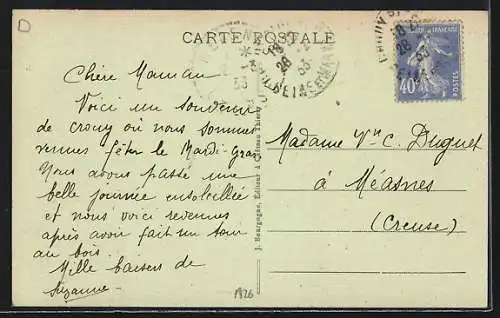 D
CARTE POSTALE
Chère Maman
Voici un souvenir
de Crouy où nous sommes
venues fêter le Mardi-Gras
Nous avons passé une
belle journée ensoleillée
et nous voici revenues
après avoir fait un tour
au bois.
Mille baisers de
Suzanne
J. Bourgogne, Éditeur à Château-Thierry
1926
FRANÇAISE
40c
POSTES
28
33
Madame Vve C. Duguet
à Méasnes
(Creuse)